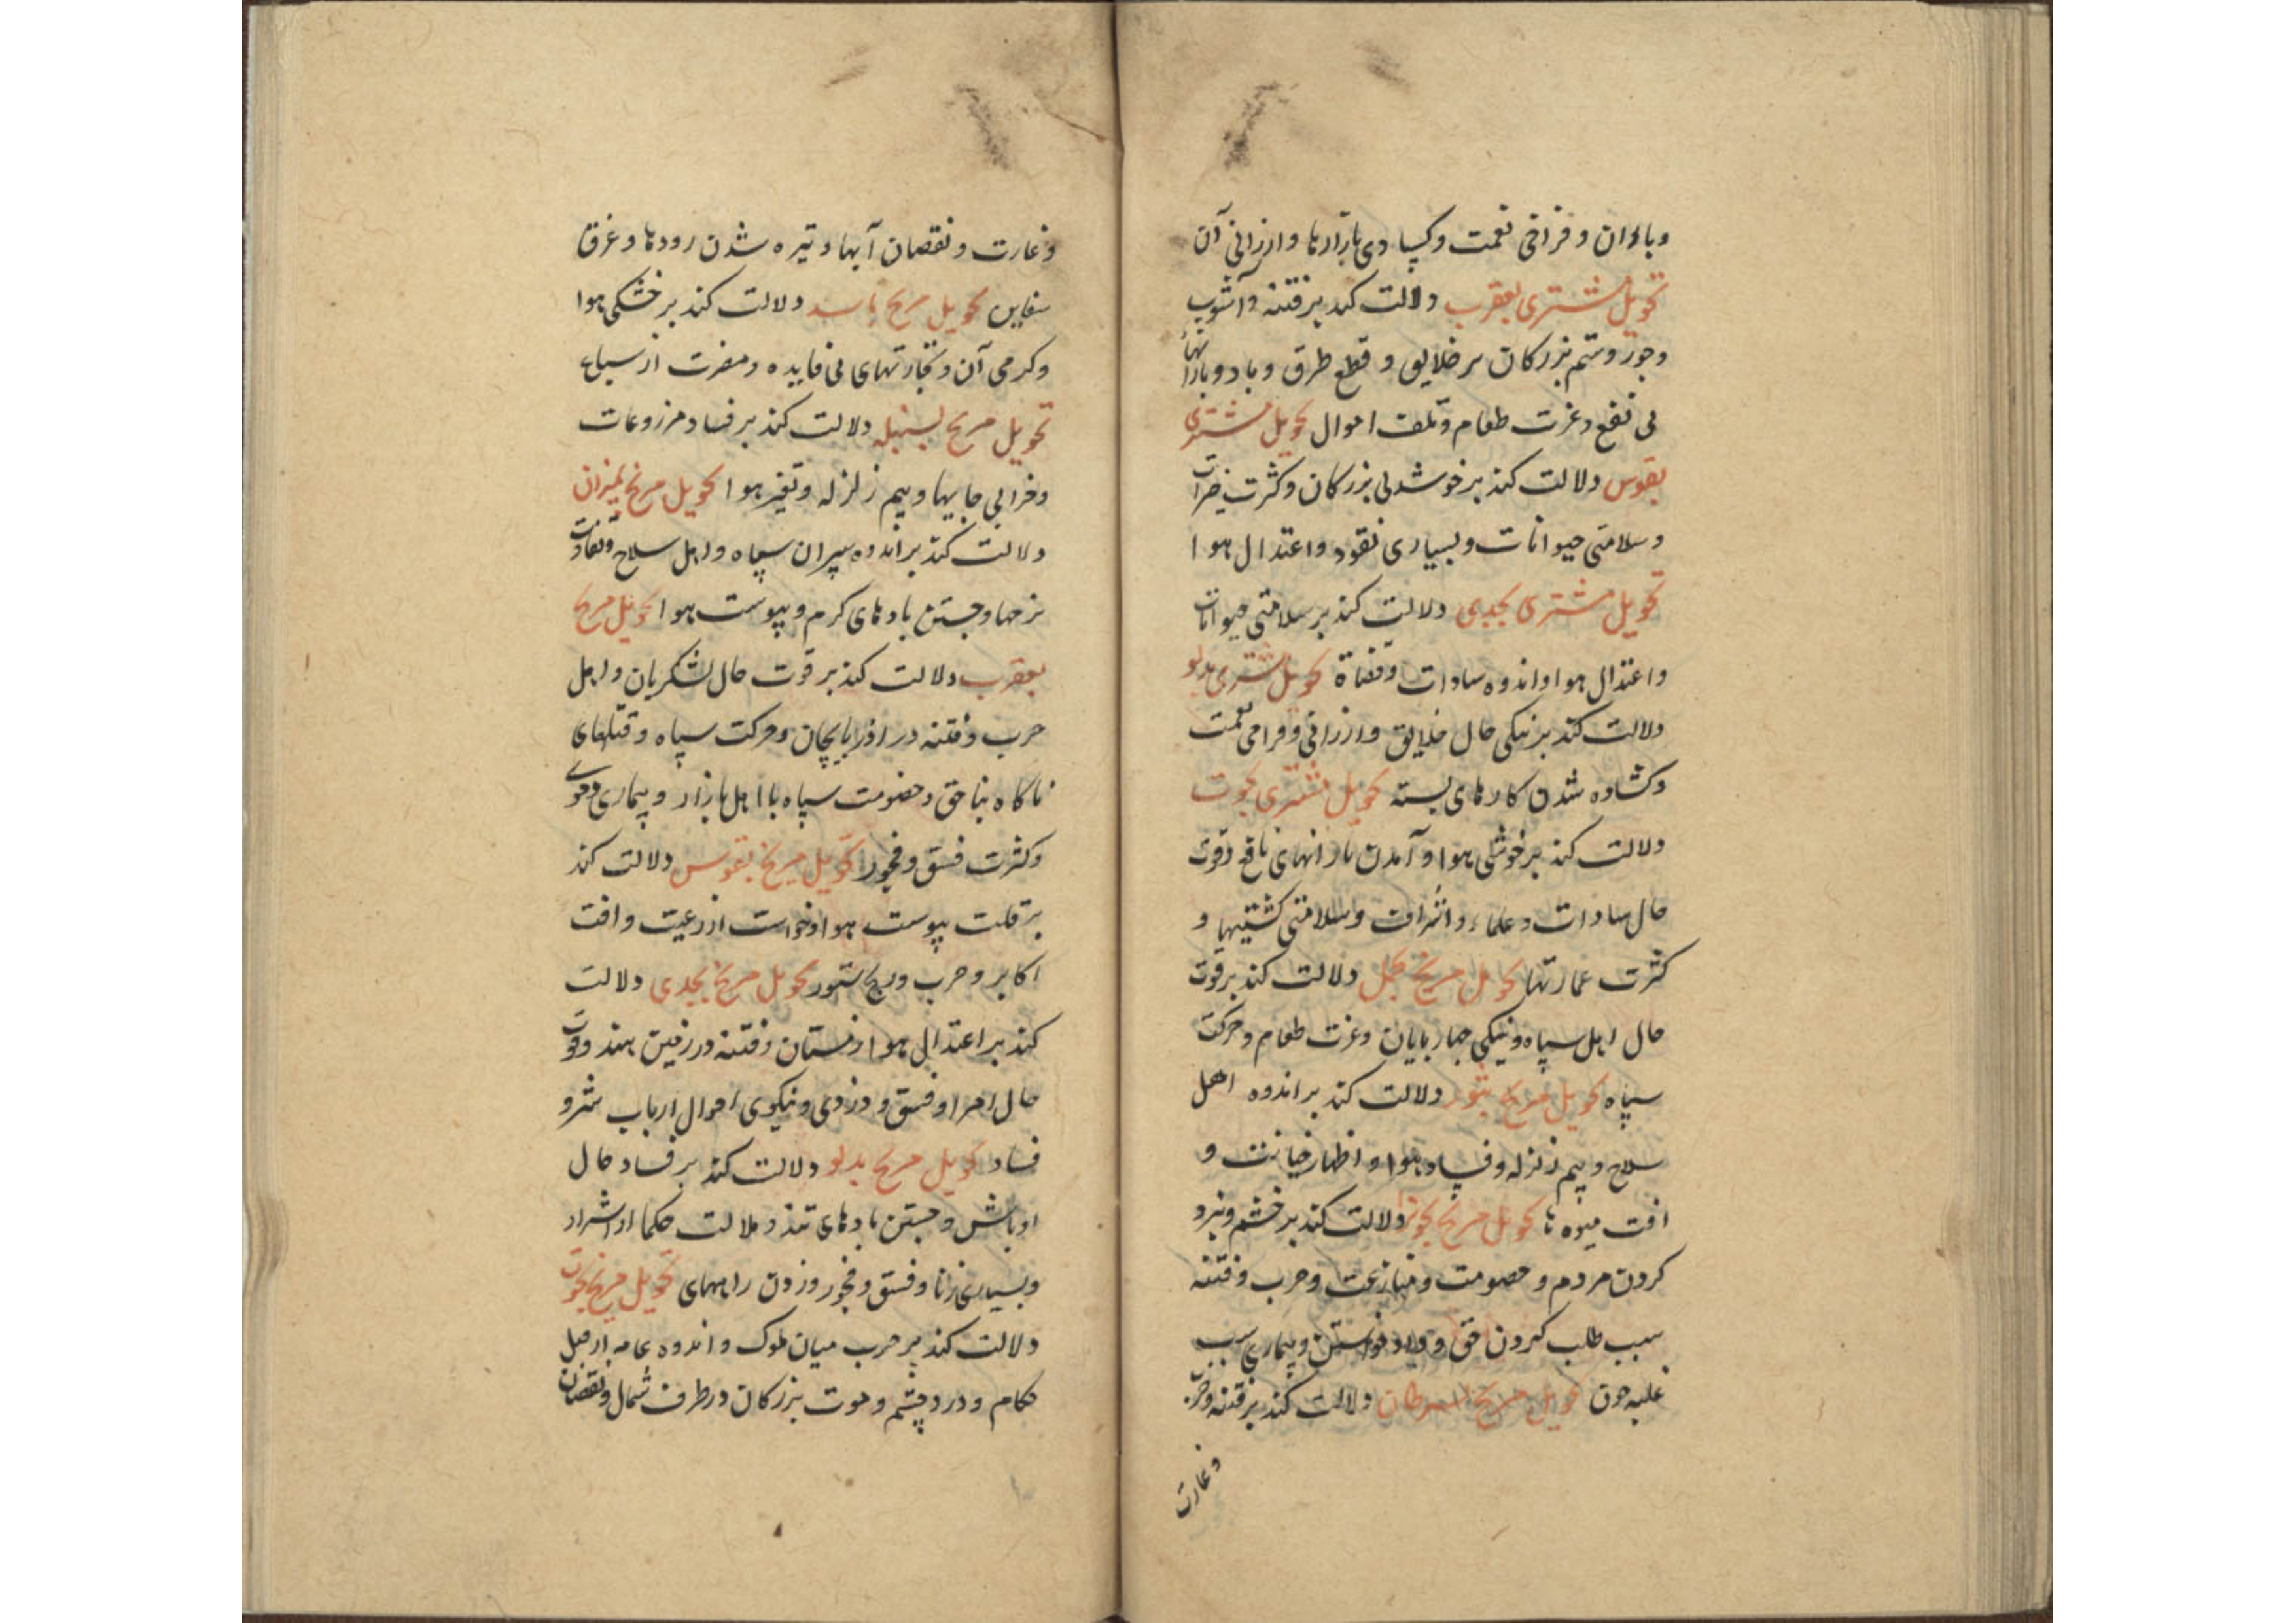 و باران و فراخی نعمت و کسادی بازارها و ارزانی آن
تحویل مشتری بعقرب دلالت کند بر فتنه و آشوب
و جور و ستم بزرکان بر خلایق و قطع طرق و باد و بارانها
بی نفع و عزت طعام و تلف اموال تحویل مشتری
بقوس دلالت کند بر خوشدلی بزرکان و کثرت خیرات
و سلامتی حیوانات و بسیاری نقود و اعتدال هوا
تحویل مشتری بجدی دلالت کند بر سلامتی حیوانات
و اعتدال هوا و اندوه سادات و قضاة تحویل مشتری بدلو
دلالت کند بر نیکی حال خلایق و ارزانی و فراخی نعمت
و کشاده شدن کارهای بسته تحویل مشتری بحوت
دلالت کند بر خوشی هوا و آمدن بارانهای نافع و قوت
حال سادات و علماء و اشراف و سلامتی کشتیها و
کثرت عمارتها تحویل مریخ بحمل دلالت کند بر قوت
حال اهل سپاه و نیکی چهارپایان و عزت طعام و حرکت
سپاه تحویل مریخ بثور دلالت کند بر اندوه اهل
سلاح و بیم زلزله و فساد هوا و اظهار خیانت و
افت میوه ها تحویل مریخ بجوزا دلالت کند بر خشم و نبرد
کردن مردم و خصومت و منازعت و حرب و فتنه
سبب طلب کردن حق و داد خواستن و بیماری سبب
غلبه خون تحویل مریخ بسرطان دلالت کند بر فتنه و حرب
و غارت
و غارت و نقصان آبها و تیره شدن رودها و غرق
سفاین تحویل مریخ باسد دلالت کند بر خشکی هوا
و کرمی آن و تجارتهای بی فایده و مضرت از سباع
تحویل مریخ بسنبله دلالت کند بر فساد مزروعات
و خرابی جایها و بیم زلزله و تغیر هوا تحویل مریخ بمیزان
دلالت کند بر اندوه سپران سپاه و اهل سلاح و تفاوت
نرخها و جستن بادهای کرم و یبوست هوا تحویل مریخ
بعقرب دلالت کند بر قوت حال لشکریان و اهل
حرب و فتنه در اذربایجان و حرکت سپاه و قتلهای
ناکاه بناحق و خصومت سپاه با اهل بازار و بیماری دموی
و کثرت فسق و فجور تحویل مریخ بقوس دلالت کند
بر قلت یبوست هوا و خواست از رعیت و افت
اکابر و حرب و رنج ستور تحویل مریخ بجدی دلالت
کند بر اعتدال هوا زمستان و فتنه در زمین هند و قوت
حال امرا و فسق و دزدی و نیکوی احوال ارباب شر و
فساد تحویل مریخ بدلو دلالت کند بر فساد حال
اوباش و جستن بادهای تند و ملالت حکما از اشرار
و بسیاری زنا و فسق و فجور و زدن راههای تحویل مریخ بحوت
دلالت کند بر حرب میان ملوک و اندوه عامه از قبل
حکام و درد چشم و موت بزرکان در طرف شمال و نقصان